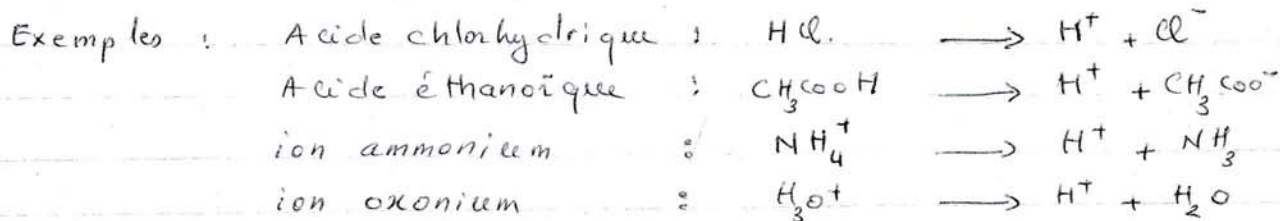 Exemples : Acide chlorhydrique : HCl. ⟶ H⁺ + Cl⁻
Acide éthanoïque : CH₃COOH ⟶ H⁺ + CH₃COO⁻
ion ammonium : NH₄⁺ ⟶ H⁺ + NH₃
ion oxonium : H₃O⁺ ⟶ H⁺ + H₂O